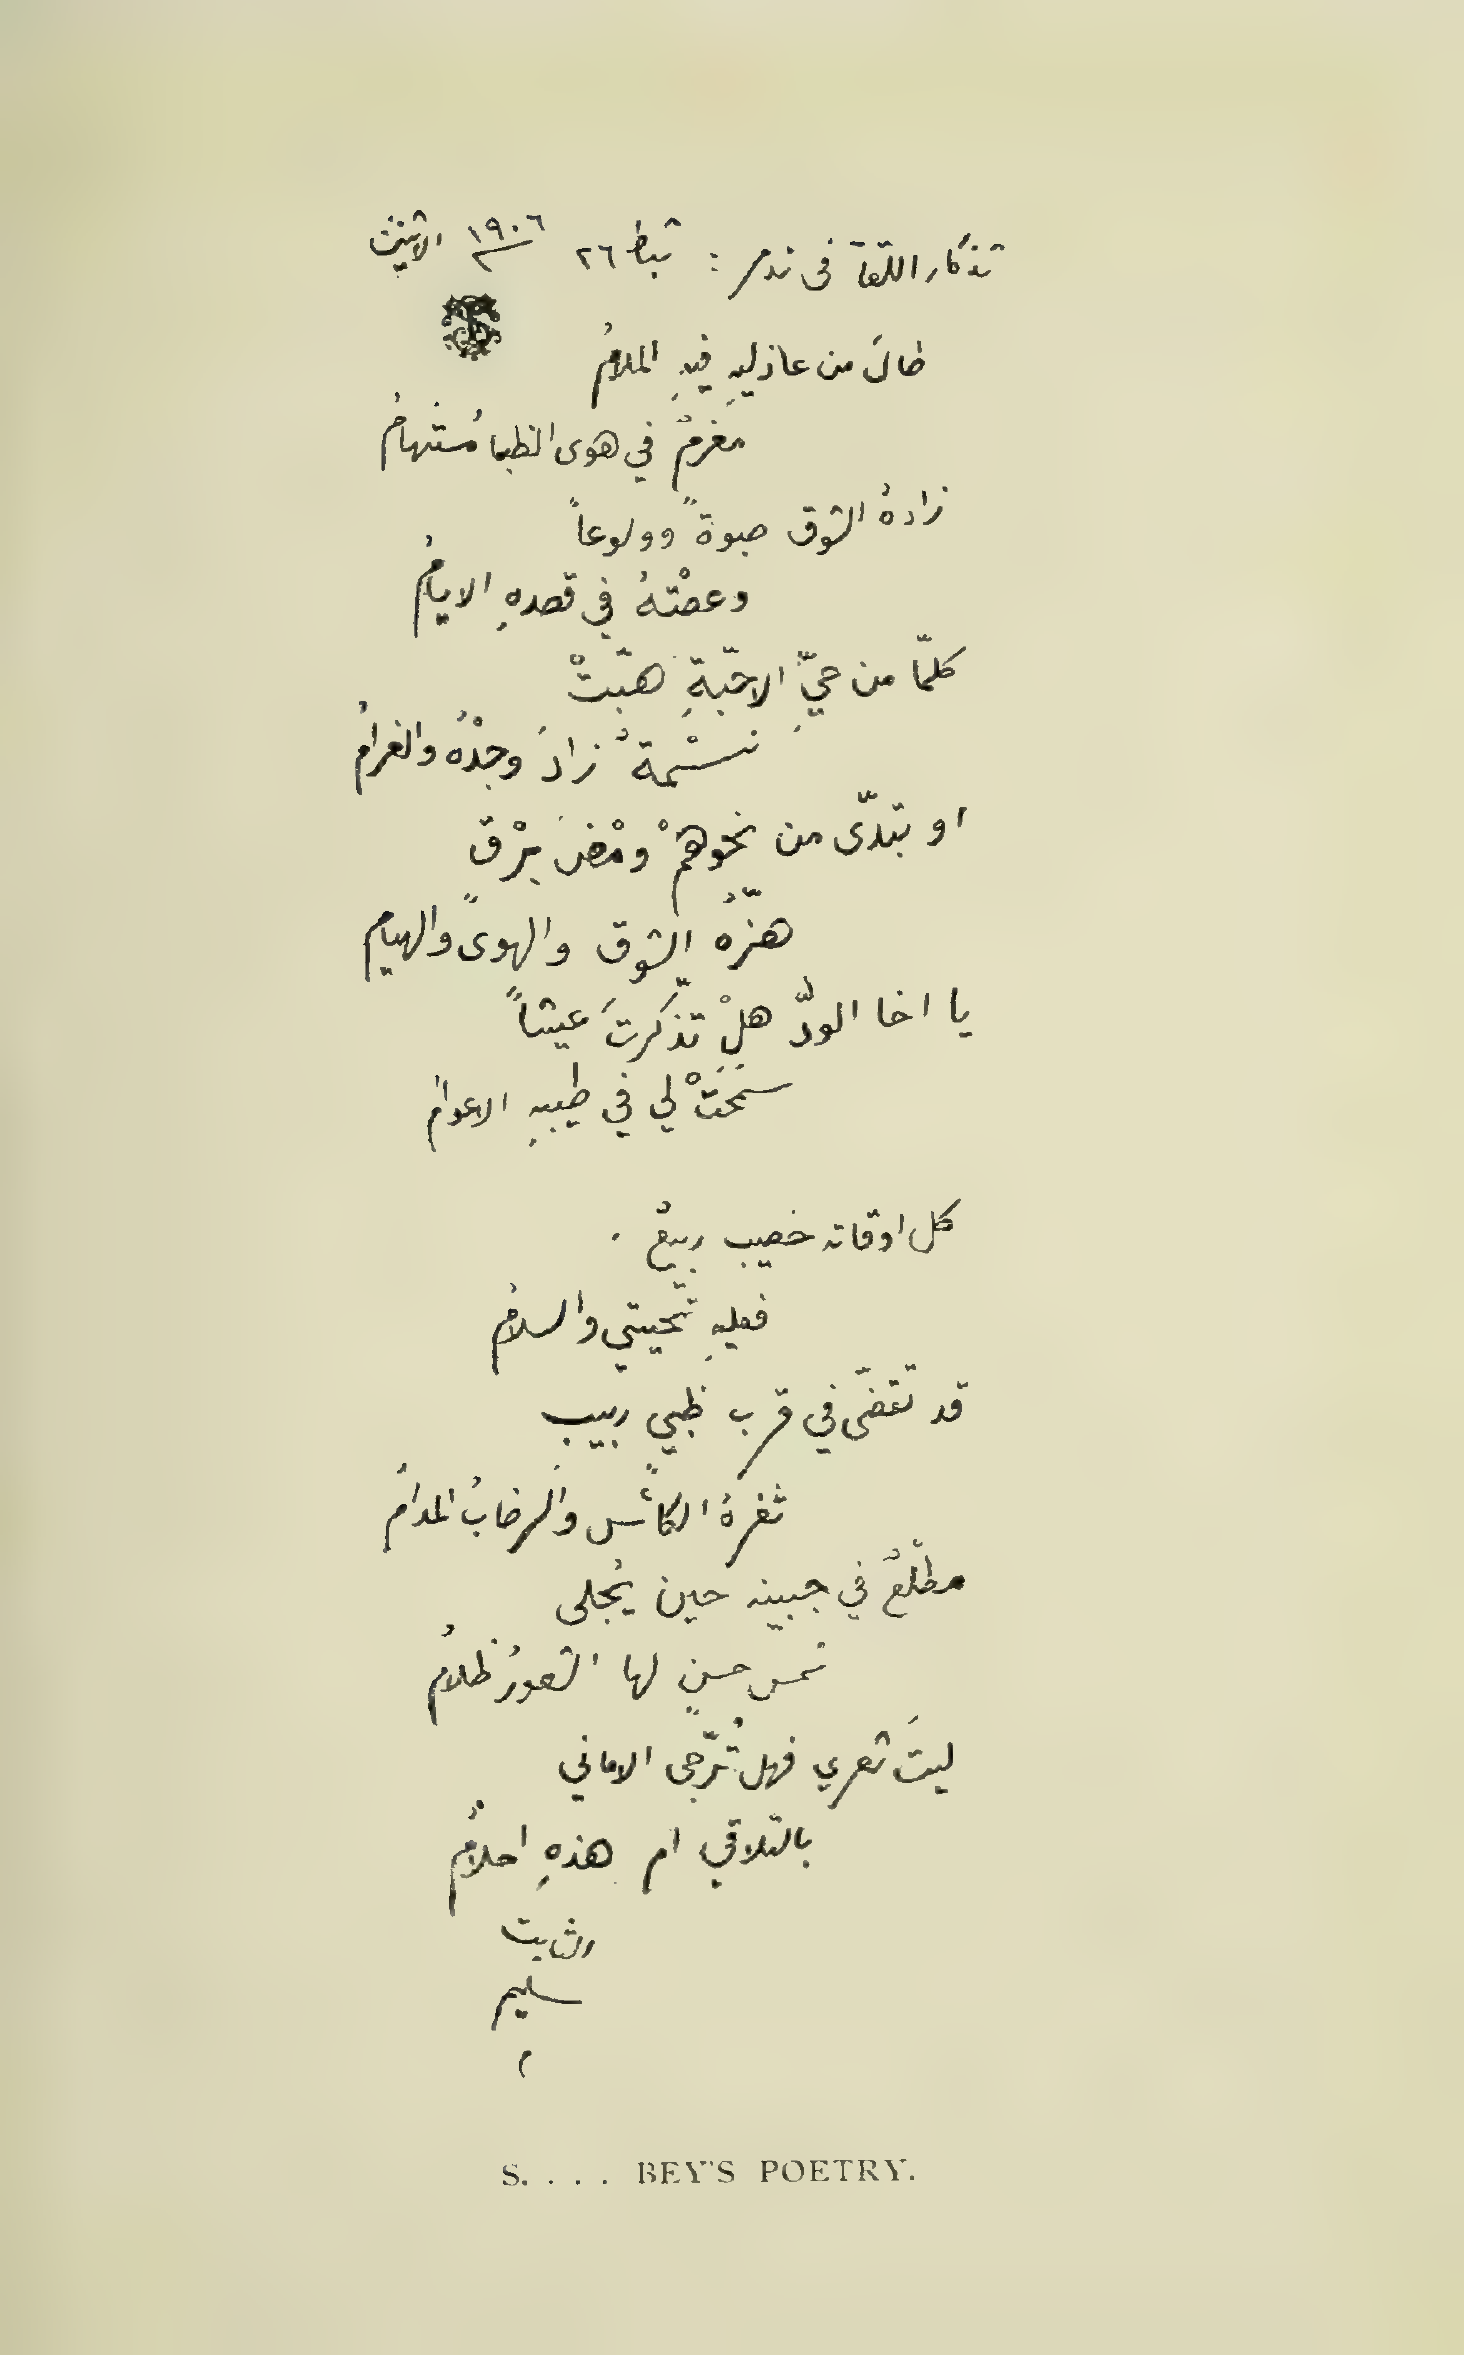 تذكار اللقا في تدمر : شباط ٢٦ ١٩٠٦ الاثنين
طالَ من عاذليهِ فيهِ الملامُ
مَغرمٌ في هوى الظبا مُستهامُ
زادهُ الشوق صبوةً وولوعاً
وعصْتهُ في قصدهِ الايامُ
كلمّا من حيِّ الاحبّةِ هبّتْ
نسْمةٌ زادَ وجْدُهُ والغرامُ
او تبدّى من نحوهمْ ومْضُ برْقٍ
هزّهُ الشوق والهوى والهيامُ
يا اخا الودِّ هلْ تذكّرتَ عيشاً
سَمَحَتْ لي في طيبهِ الاعوامُ
كل اوقاته خصيب ربيعٌ
فعليهِ تحيّتي والسلامُ
قد تقضّى في قرب ظبيٍ ربيب
ثغرهُ الكأس والرضابُ المدامُ
مطلّعٌ في جبينه حين يُجلى
شمس حسنٍ لها الشعورُ ظلامُ
ليتَ شعري فهل تُرّجى الاماني
بالتلاقي ام هذهِ احلامُ
سليم
م
S. . . . BEY'S POETRY.